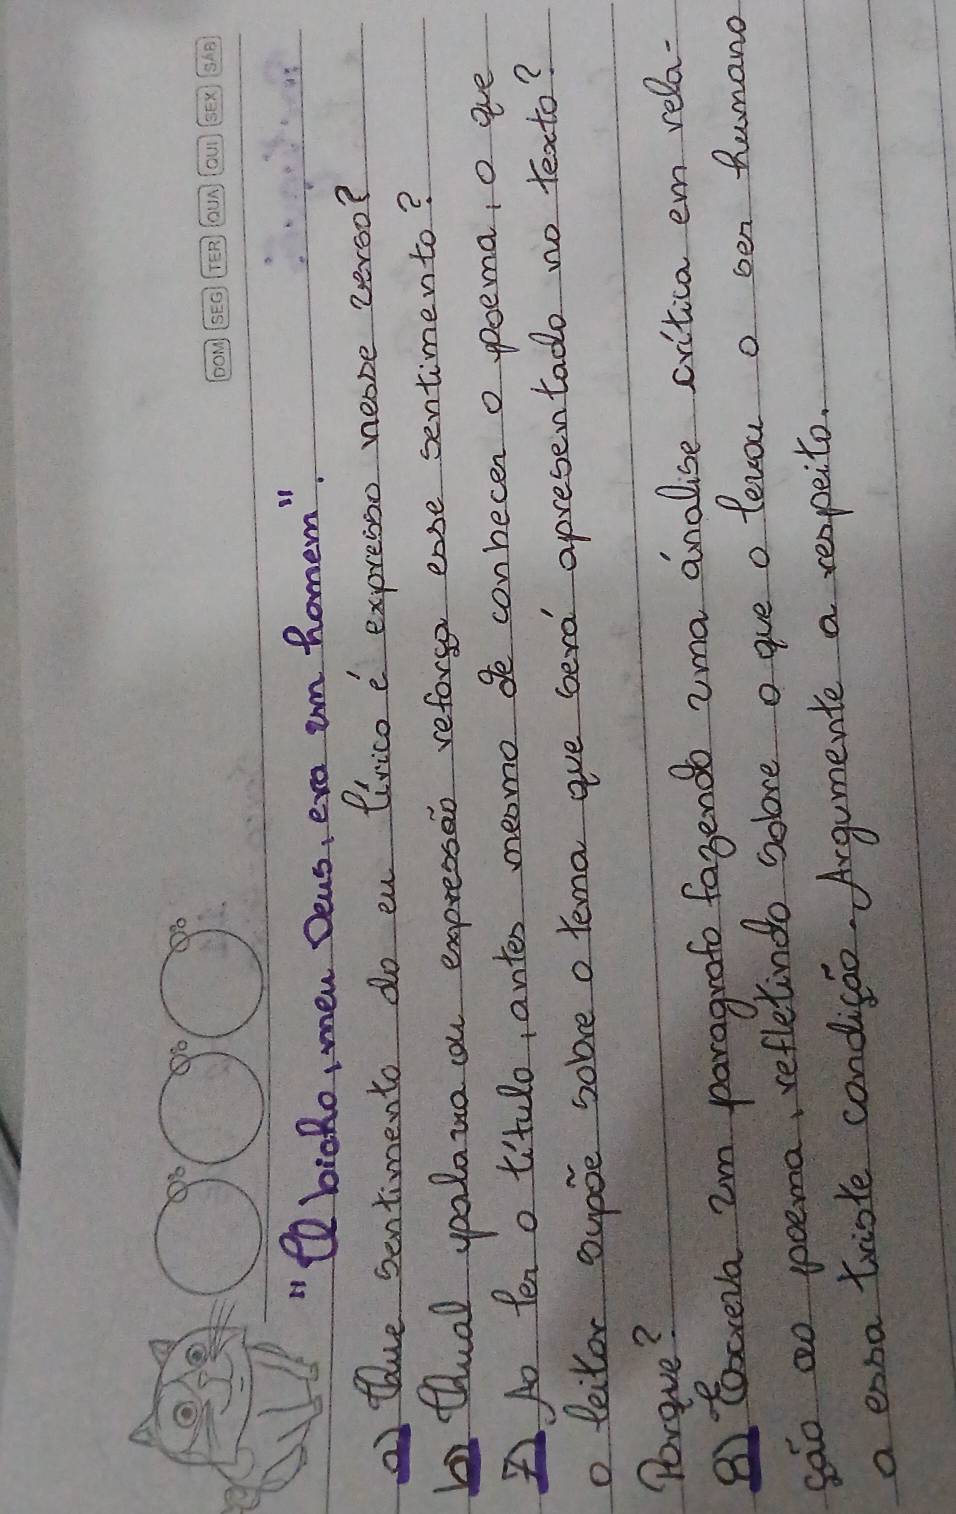 DOM SEG TER QUA QUI SEX SAB
"O bicho, meu Deus, era um homem".
a) Que sentimento do eu lírico é expresso nesse verso?
b) Qual palavra ou expressão reforça esse sentimento?
7) Ao ler o título, antes mesmo de conhecer o poema, o que
o leitor supõe sobre o tema que será apresentado no texto?
Porque?
8) Escreva um paragrafo fazendo uma ánalise crítica em rela-
ção ao poema, refletindo sobre o que o levou o ser humano
a essa triste condição. Argumente a respeito.